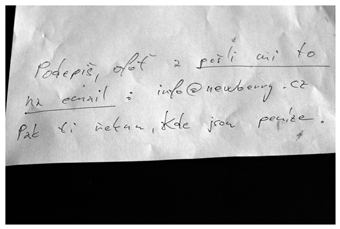 Podepiš, ofoť a pošli mi to
na email : info@newberry.cz
Pak ti řeknu, kde jsou peníze.